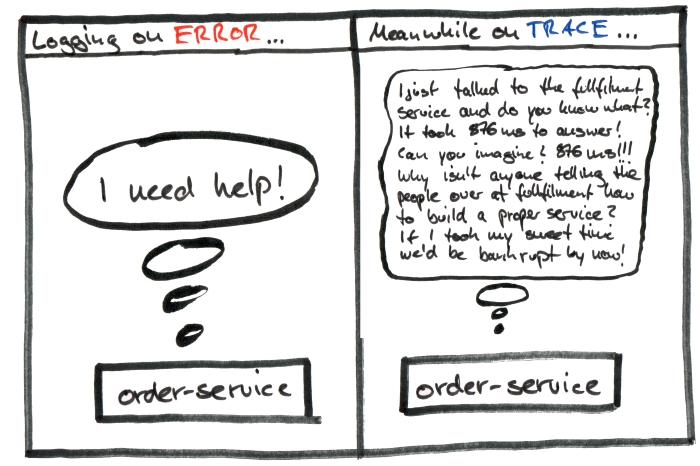 Logging on ERROR...
I need help!
order-service
Meanwhile on TRACE...
I just talked to the fullfilment
service and do you know what?
It took 876 ms to answer!
Can you imagine? 876 ms!!!
Why isn't anyone telling the
people over at fullfilment how
to build a proper service?
If I took my sweet time
we'd be bankrupt by now!
order-service